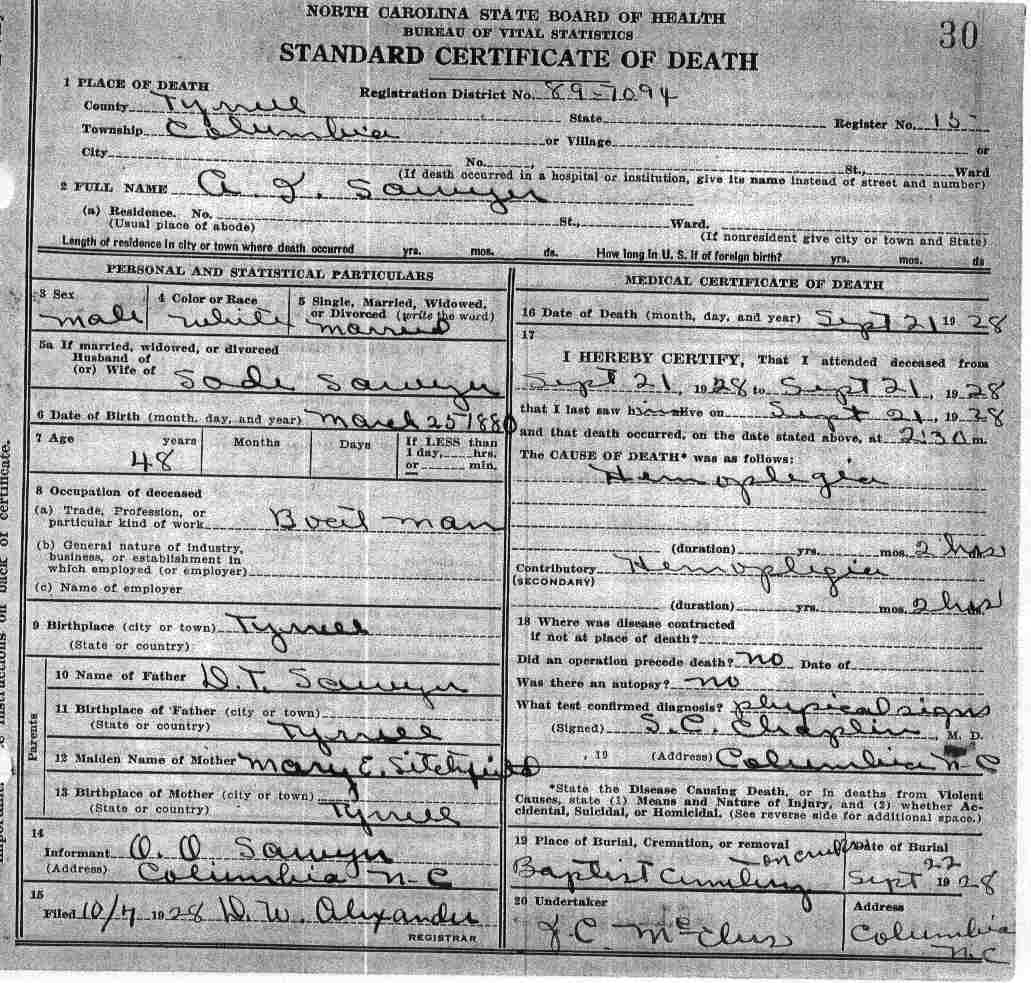 NORTH CAROLINA STATE BOARD OF HEALTH
BUREAU OF VITAL STATISTICS
STANDARD CERTIFICATE OF DEATH
30
1 PLACE OF DEATH
Registration District No. 89-7094
County Tyrrell State Register No. 15
Township Columbia or Village or
City No. , St., Ward
(If death occurred in a hospital or institution, give its name instead of street and number)
2 FULL NAME Sawyer
(a) Residence. No. St., Ward.
(Usual place of abode) (If nonresident give city or town and State)
Length of residence in city or town where death occurred yrs. mos. ds. How long in U. S. if of foreign birth? yrs. mos. ds
PERSONAL AND STATISTICAL PARTICULARS
3 Sex male
4 Color or Race white
5 Single, Married, Widowed, or Divorced (write the word) married
5a If married, widowed, or divorced
Husband of
(or) Wife of Sade Sawyer
6 Date of Birth (month, day, and year) March 25 1880
7 Age years Months Days If LESS than
1 day, hrs.
or min.
48
8 Occupation of deceased
(a) Trade, Profession, or
particular kind of work Boat man
(b) General nature of industry,
business, or establishment in
which employed (or employer)
(c) Name of employer
9 Birthplace (city or town) Tyrrell
(State or country)
Parents
10 Name of Father D.T. Sawyer
11 Birthplace of Father (city or town)
(State or country) Tyrrell
12 Maiden Name of Mother Mary E.
13 Birthplace of Mother (city or town)
(State or country) Tyrrell
14
Informant O. O. Sawyer
(Address) Columbia N-C
15
Filed 10/7 1928 D. W. Alexander
REGISTRAR
MEDICAL CERTIFICATE OF DEATH
16 Date of Death (month, day, and year) Sept 21 19 28
17
I HEREBY CERTIFY, That I attended deceased from
Sept 21, 1928 to Sept 21, 1928
that I last saw him alive on Sept 21, 1928
and that death occurred, on the date stated above, at 2:30 m.
The CAUSE OF DEATH* was as follows:
Hemoplegia
(duration) yrs. mos. 2 hrs
Contributory Hemoplegia
(SECONDARY)
(duration) yrs. mos. 2 hrs
18 Where was disease contracted
if not at place of death?
Did an operation precede death? no Date of
Was there an autopsy? no
What test confirmed diagnosis? physical signs
(Signed) S.C. Chaplin, M. D.
, 19 (Address) Columbia N-C
*State the Disease Causing Death, or in deaths from Violent
Causes, state (1) Means and Nature of Injury, and (2) whether Ac-
cidental, Suicidal, or Homicidal. (See reverse side for additional space.)
19 Place of Burial, Cremation, or removal
Baptist
Date of Burial
Sept 22 1928
20 Undertaker
Address
Columbia
N.C